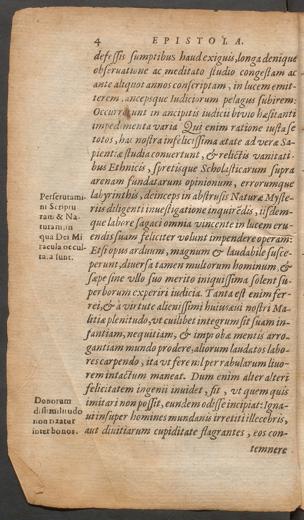 4 EPISTOLA.
defessis sumptibus haud exiguis, longa denique
obseruatione ac meditato studio congestam ac
ante aliquot annos conscriptam, in lucem emit-
terem, ancepsque Iudiciorum pelagus subirem:
Occurrebant in ancipitis iudicii bivio hæsitanti
impedimenta varia. Qui enim ratione iusta se
totos, hac nostra infelicissima ætate ad vera Sa-
pientiæ studia conuertunt, & relictis vanitati-
bus Ethnicis, spretisque Scholasticarum supra
arenam fundatarum opinionum, errorumque
labyrinthis, deinceps in abstrusis Naturæ Myste-
riis diligenti inuestigatione inquirēdis, iisdem-
que labore sagaci omnia vincente in lucem eru-
endis suam feliciter volunt impendere operam:
Etsi opus arduum, magnum & laudabile susce-
perunt, diuersa tamen multorum hominum &
sæpe sine vllo suo merito iniquissima solent su-
perborum experiri iudicia. Tanta est enim fer-
rei, & à virtute alienissimi huiusæui nostri Ma-
litiæ plenitudo, vt cuilibet integrum sit suam in-
fantiam, nequitiam, & improba mentis arro-
gantiam mundo prodere, aliorum laudatos labo-
res carpendo, ita vt fere nil per rabularum liuo-
rem intactum maneat. Dum enim alter alteri
felicitatem ingenii inuidet, fit, vt quem quis
imitari non possit, eundem odisse incipiat: Igna-
ui insuper homines mundanis irretiti illecebris,
aut diuitiarum cupiditate flagrantes, eos con-
temnere
Perscrutami-
ni Scriptu-
ram & Na-
turam, in
qua Dei Mi
racula occul-
ta, a sunt.
Donorum
dissimilitudo
non paratur
inter bonos.